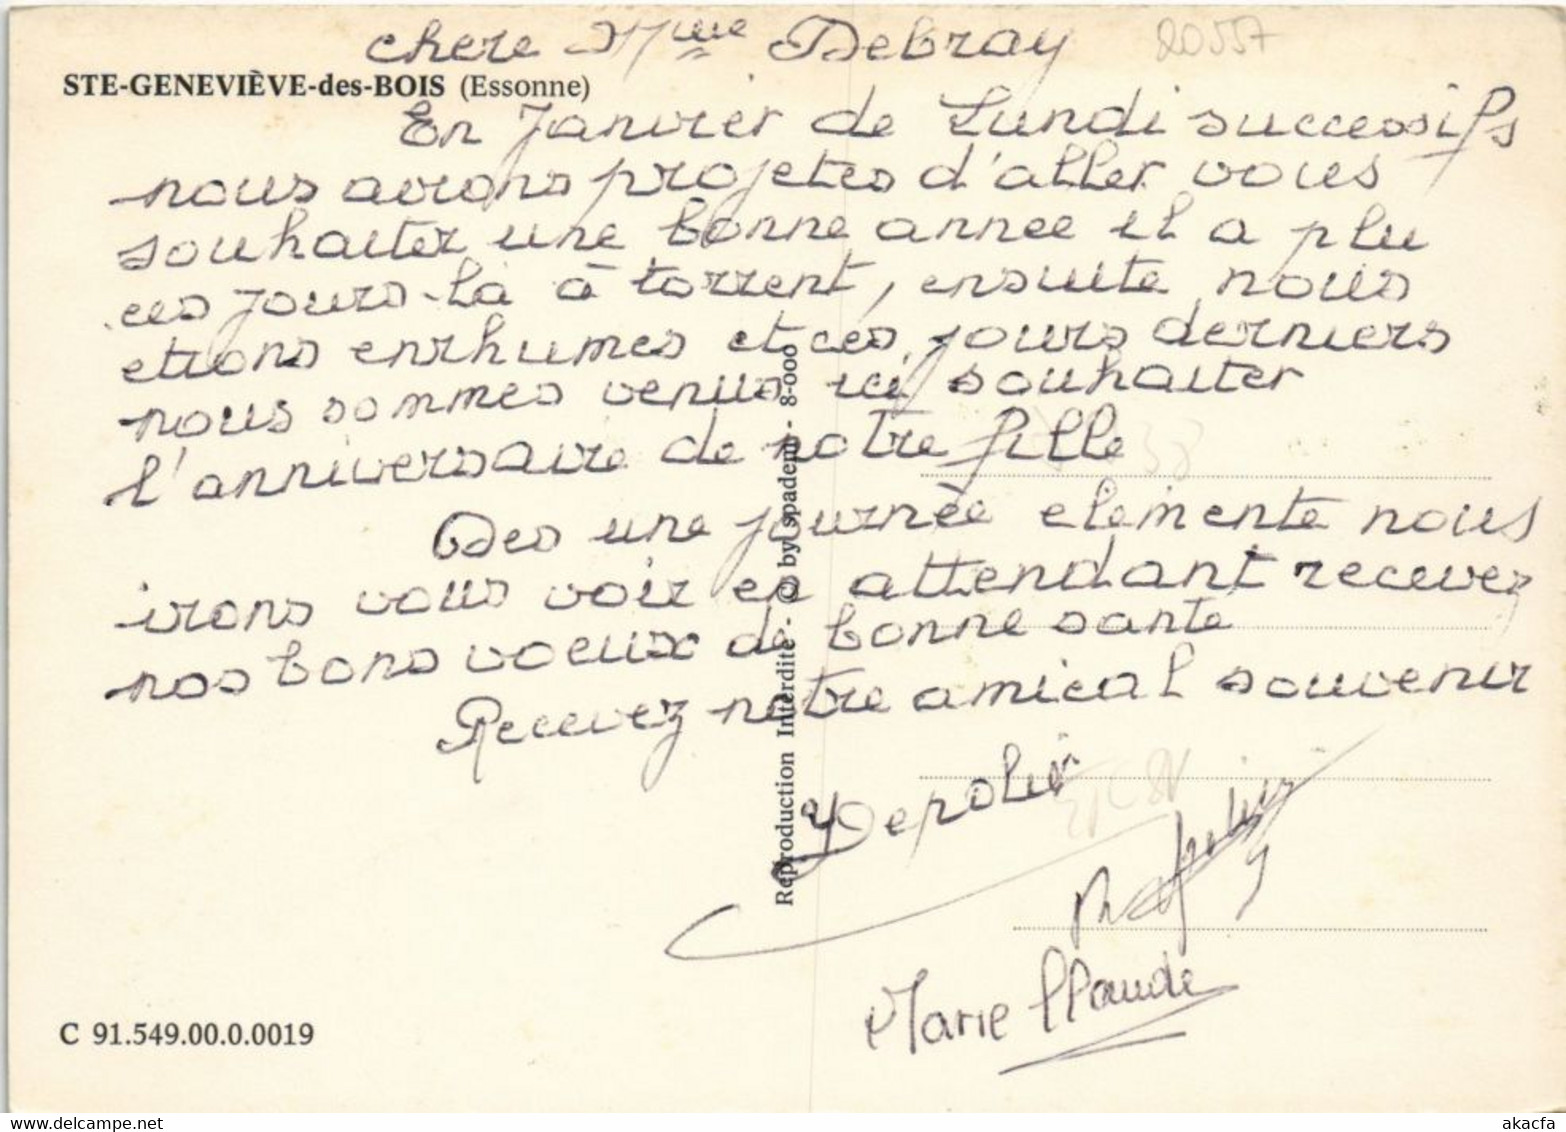 chere Mme Debray 20557
STE-GENEVIÈVE-des-BOIS (Essonne)
En Janvier de Lundi successifs
nous avions projetes d'aller vous
souhaiter une bonne annee il a plu
ces jours-là à torrent, ensuite nous
etions enrhumes et ces jours derniers
nous sommes venus ici souhaiter
l'anniversaire de notre fille
Des une journèe elemente nous
irons vous voir en attendant recevez
nos bons voeux de bonne sante
Recevez notre amical souvenir
Marie Claude
Reproduction Interdite - © by spadem - 8-000
C 91.549.00.0.0019
akacfa
www.delcampe.net